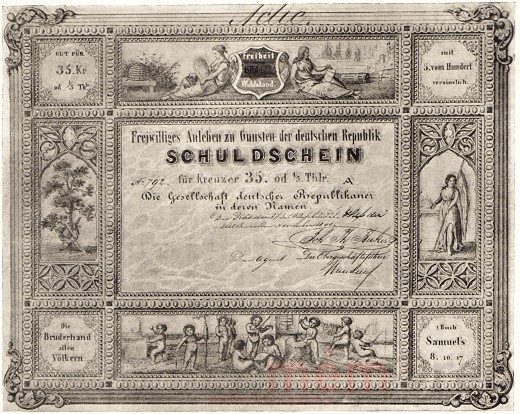 Actie.
GUT FÜR
35. Kr
od ⅓ Thlr
Freiheit
Wohlstand.
mit
5. vom Hundert
verzinslich.
Freywilliges Anlehen zu Gunsten der deutschen Republik
SCHULDSCHEIN
No 792. für Kreuzer 35. od ⅓ Thlr. A
Die Gesellschaft deutscher Republikaner
in deren Namen
Der Agent
Die
Bruderhand
allen
Völkern
1 Buch
Samuel's
8. 10. 17.